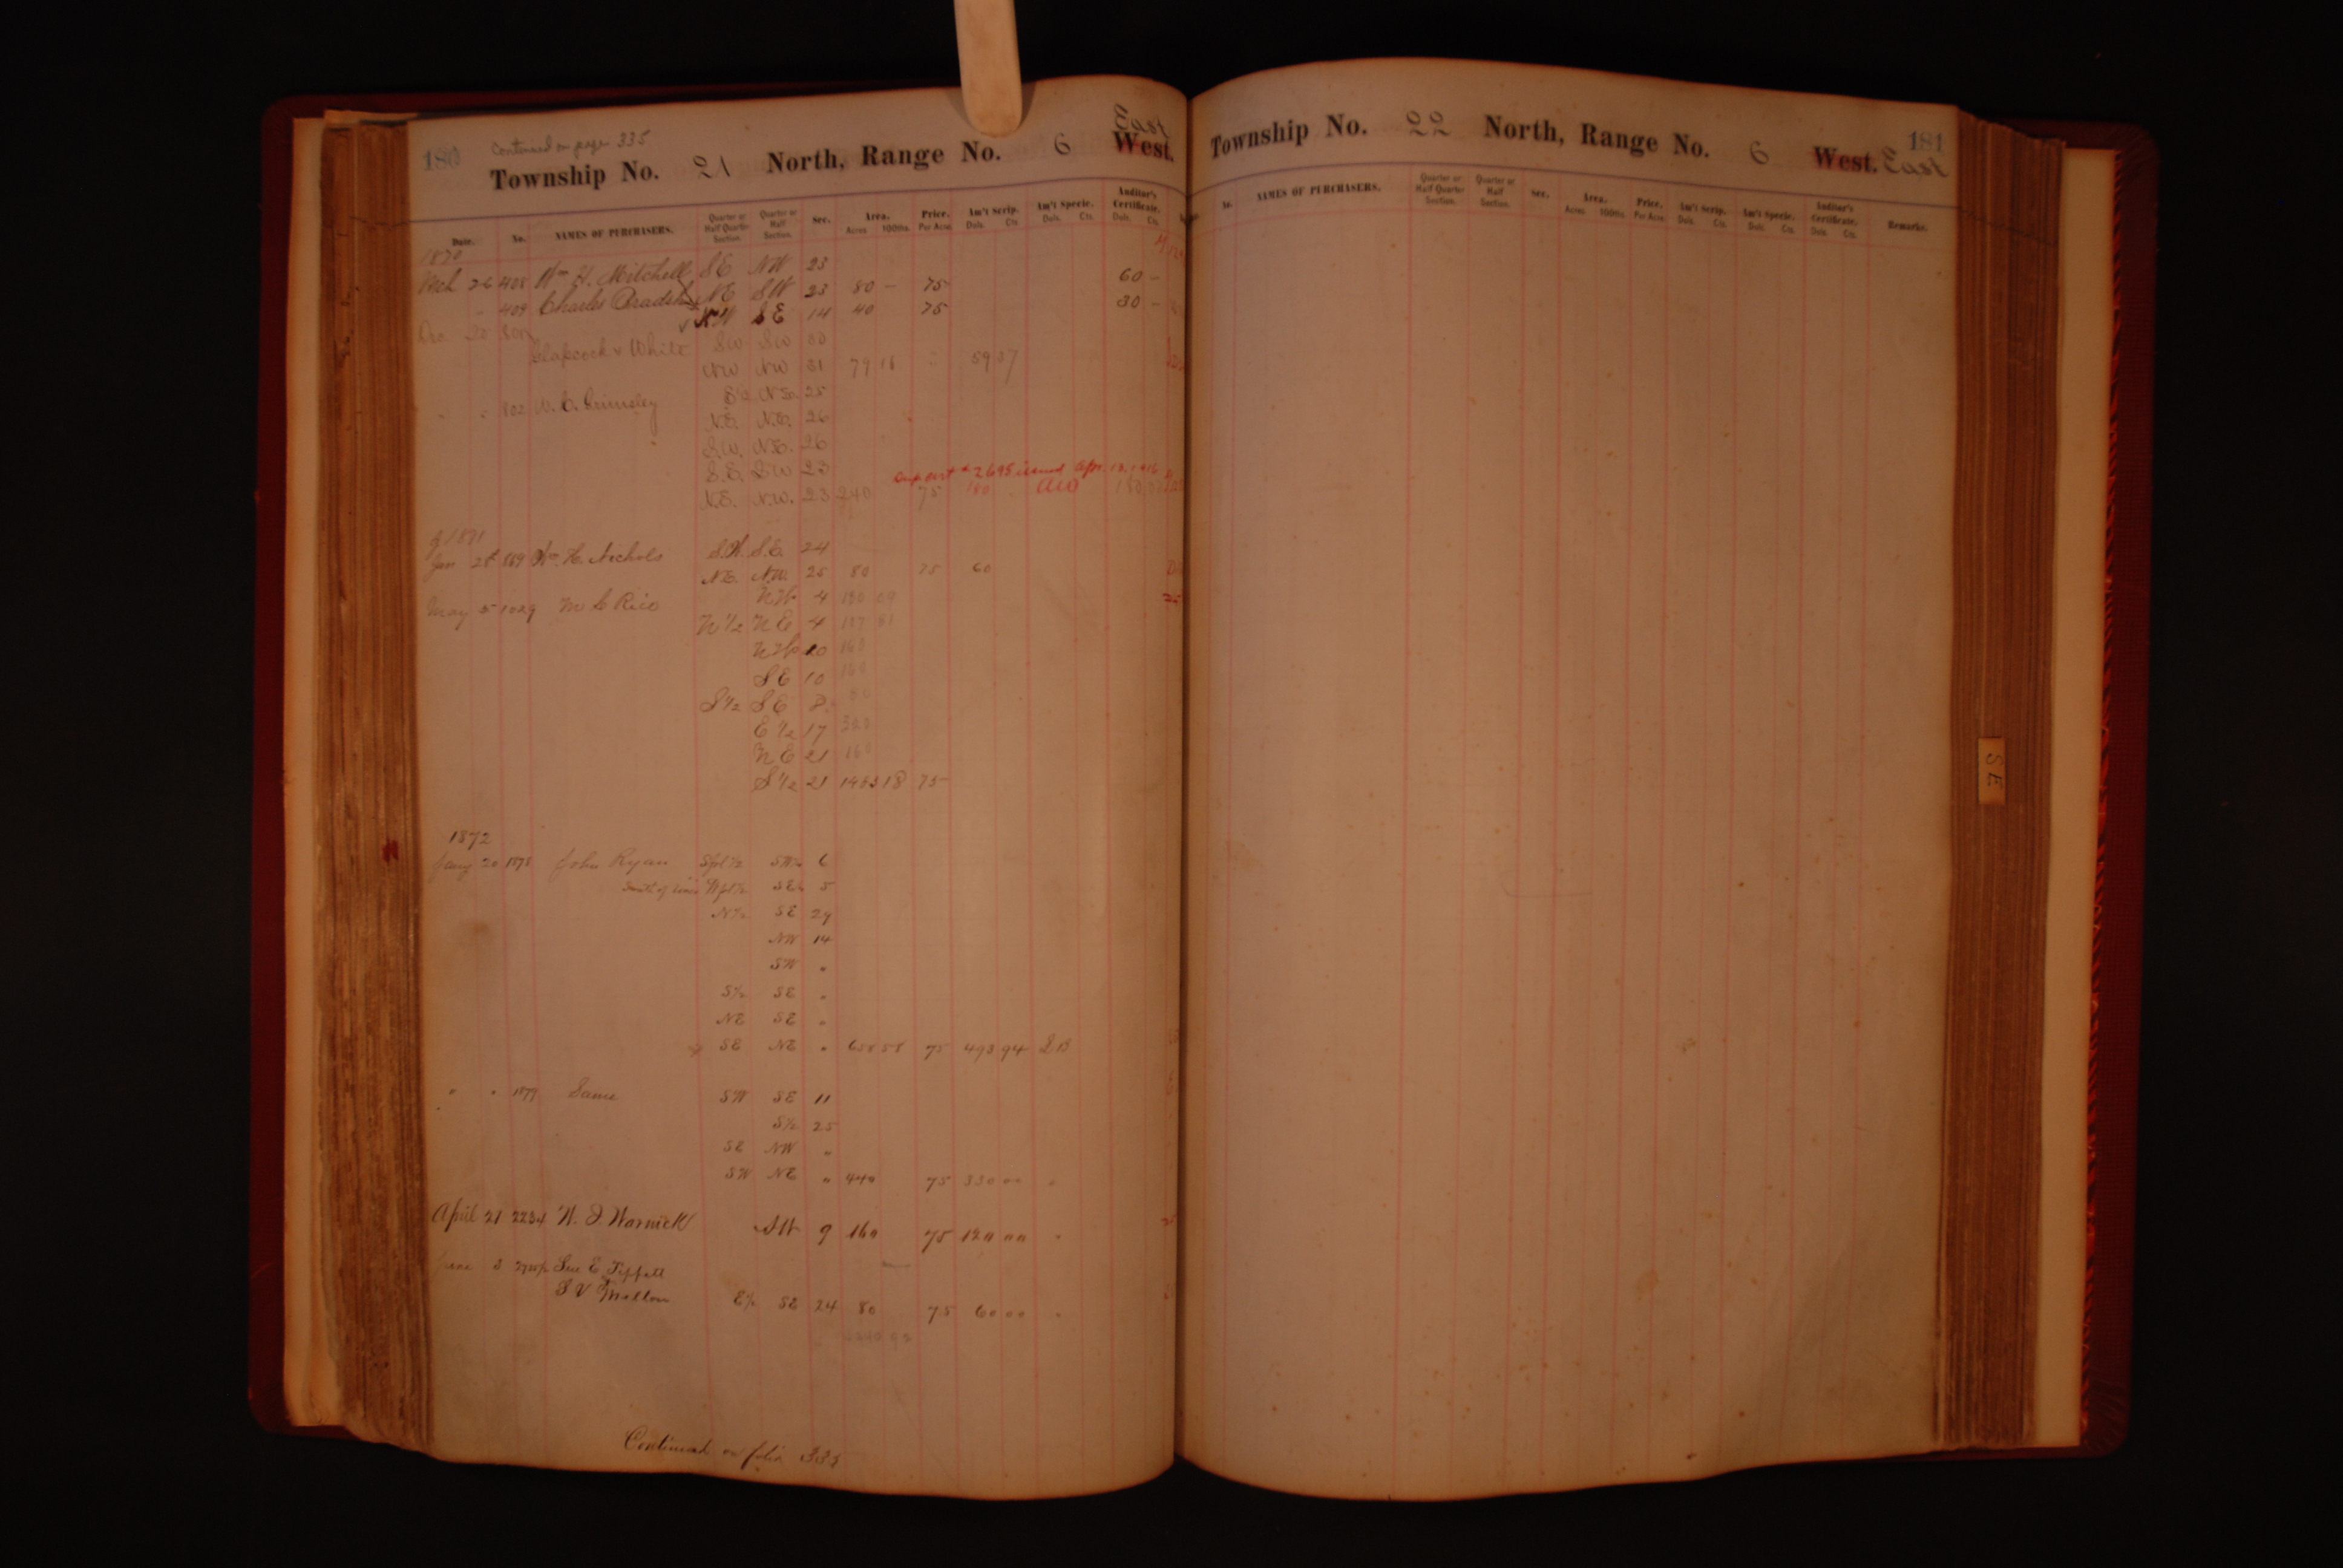 180 Continued on page 335
East
Township No. 21 North, Range No. 6 West.
Date. No. NAMES OF PURCHASERS. Quarter or Half Quarter Section. Quarter or Half Section. Sec. Area. Acres 100ths. Price. Per Acre. Am't Scrip. Dols. Cts. Am't Specie. Dols. Cts. Auditor's Certificate. Dols. Cts.
1870
26 408 Wm H. Mitchell SE NW 23
NE SW 23 80 - 75 60 -
" 409 Charles NW SE 14 40 75 30 -
Dec 20 & White SW SW 30
NW NW 31 79 16 " 59 37
" " 802 W. C. Grimsley S½ NE 25
N.E. N.E. 26
S.W. N.E. 26
S.E. SW 23
2695 issued Apr.
N.E. N.W. 23 240 75 180
1871
Jan 28 869 Wm. H. Nichols S.W. S.E. 24
N.E. N.W. 25 80 75 60
May 5 1029 M C Rice NW 4 180 29
N ½ NE 4 107 81
NW 20 160
SE 10 160
S ½ SE 8 80
E ½ 17 320
NE 21 160
S ½ 21 1463 18 75
1872
Jany 20 1878 John Ryan Sfrl ½ SW¼ 6
South of river Wfrl ½ SE¼ 5
N½ SE 29
NW 14
SW "
S½ SE "
NE SE "
SE NE " 658 58 75 493 94
" " 1879 Same SW SE 11
S½ 25
SE NW "
SW NE " 440 75 330 00 "
April 27 2234 W. J. Warnick SW 9 160 75 120 00 "
June 3 E Tippett
S V Mellon E½ SE 24 80 75 60 00 "
Continued on folio 335
181
Township No. 22 North, Range No. 6 West. East
No. NAMES OF PURCHASERS. Quarter or Half Quarter Section. Quarter or Half Section. Sec. Area. Acres 100ths. Price. Per Acre. Am't Scrip. Dols. Cts. Am't Specie. Dols. Cts. Auditor's Certificate. Dols. Cts. Remarks.
SE